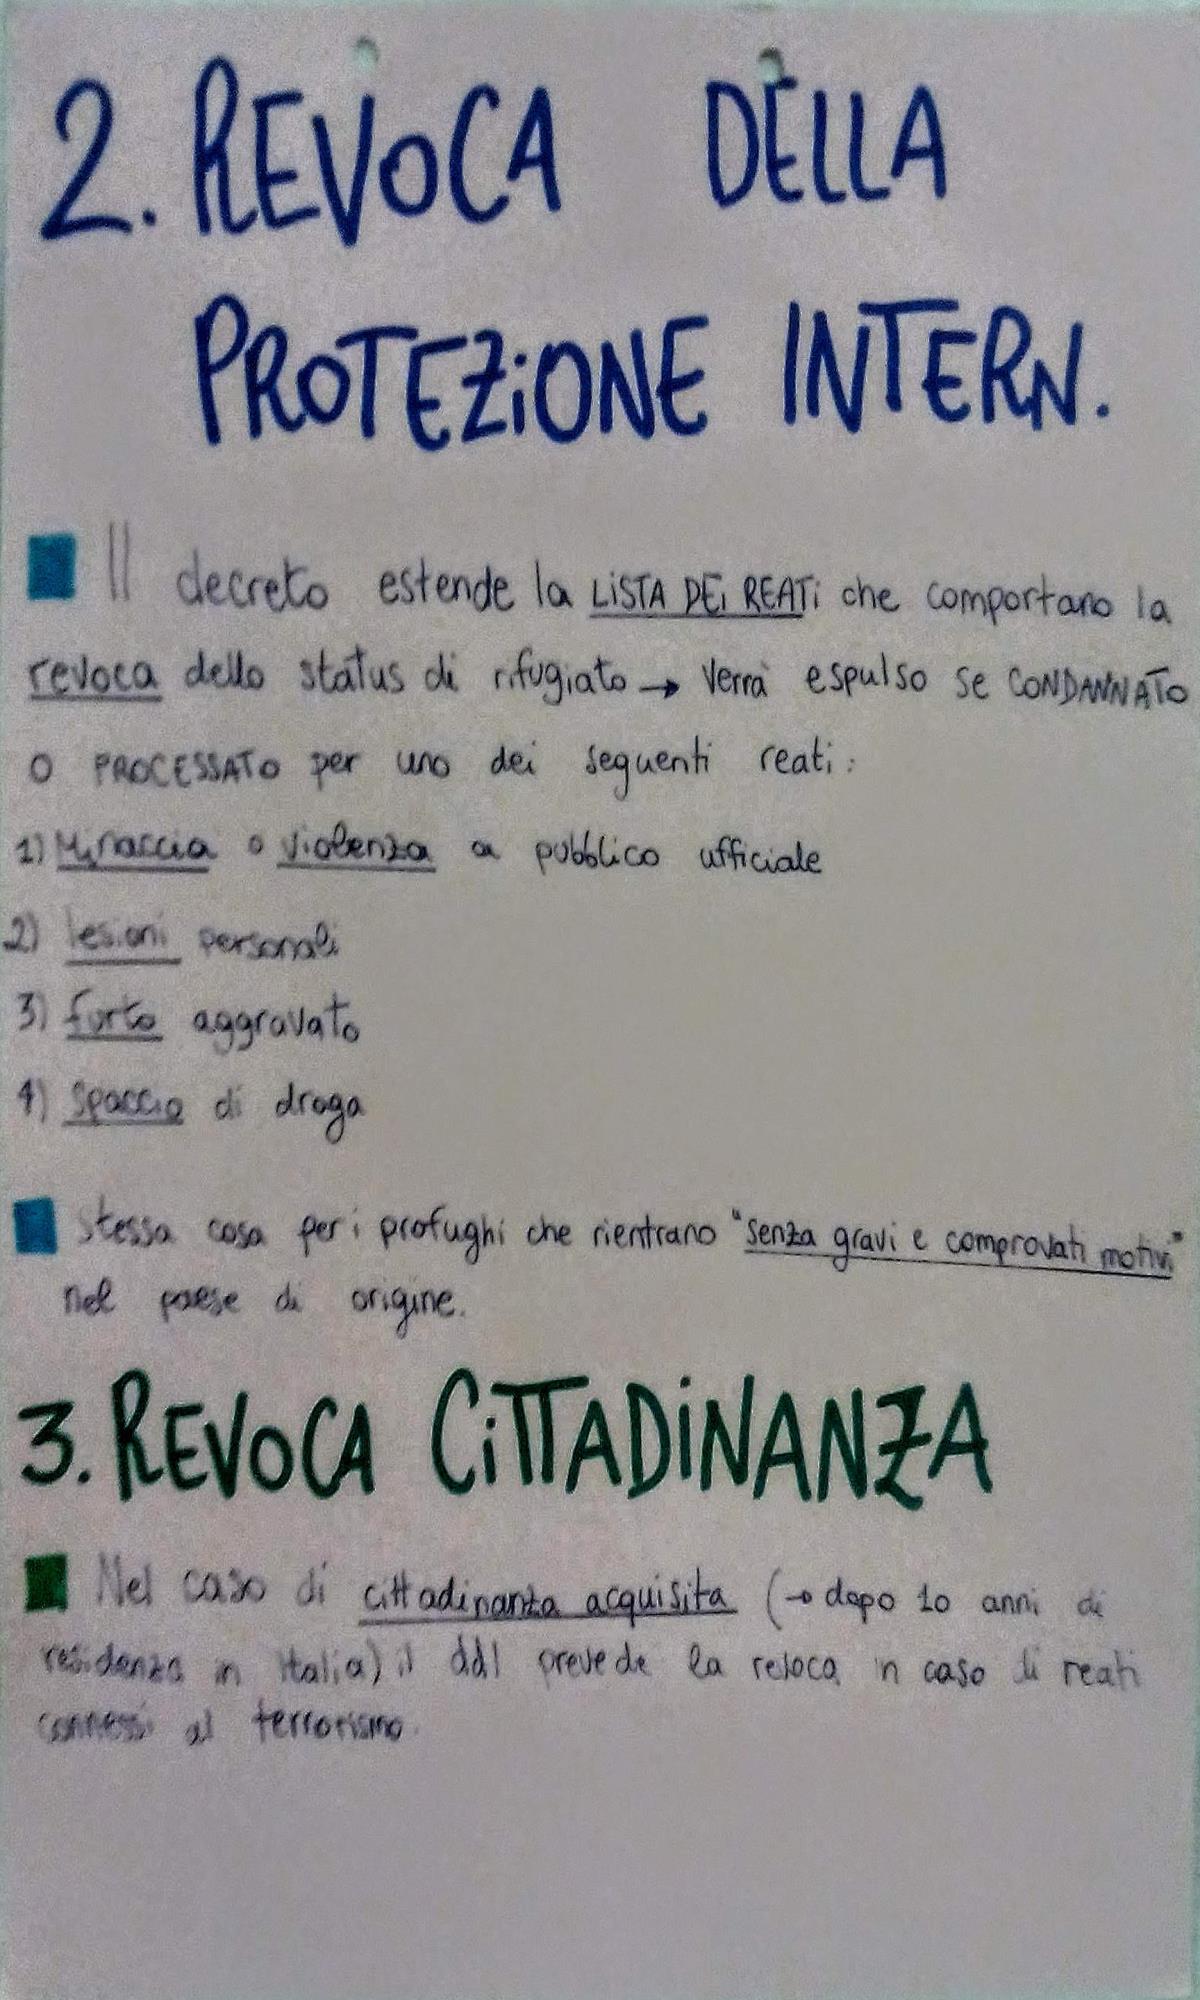 2. REVOCA DELLA
PROTEZIONE INTERN.
Il decreto estende la LISTA DEI REATI che comportano la
revoca dello status di rifugiato → Verrà espulso se CONDANNATO
O PROCESSATO per uno dei seguenti reati:
1) Minaccia o violenza a pubblico ufficiale
2) lesioni personali
3) furto aggravato
4) Spaccio di droga
Stessa cosa per i profughi che rientrano "senza gravi e comprovati motivi"
nel paese di origine.
3. REVOCA CITTADINANZA
Nel caso di cittadinanza acquisita (→ dopo 10 anni di
residenza in Italia) il ddl prevede la revoca in caso di reati
connessi al terrorismo.